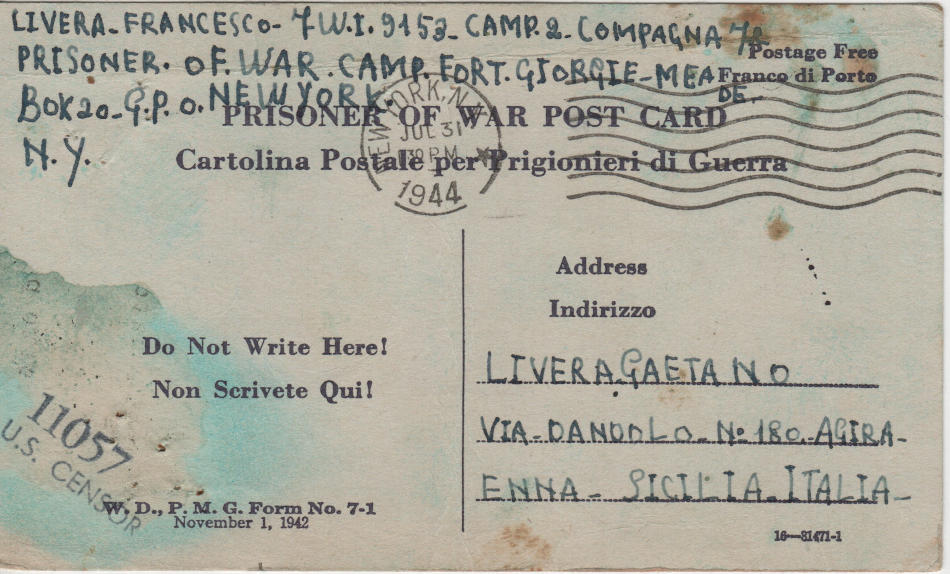 LIVERA-FRANCESCO- 7W.I. 9153-CAMP.2-COMPAGNA 7A
PRISONER. OF. WAR. CAMP. FORT. GIORGIE-MEA
DE-
BOX 20-G.P.O. NEW YORK.
N.Y.
Postage Free
Franco di Porto
PRISONER OF WAR POST CARD
Cartolina Postale per Prigionieri di Guerra
NEW YORK, N.Y.
JUL 31
PM
1944
Address
Indirizzo
LIVERA GAETANO
VIA-DANDOLO-No 180-AGIRA-
ENNA- SICILIA-ITALIA-
Do Not Write Here!
Non Scrivete Qui!
11057
U.S. CENSOR
W. D., P. M. G. Form No. 7-1
November 1, 1942
16—31471-1